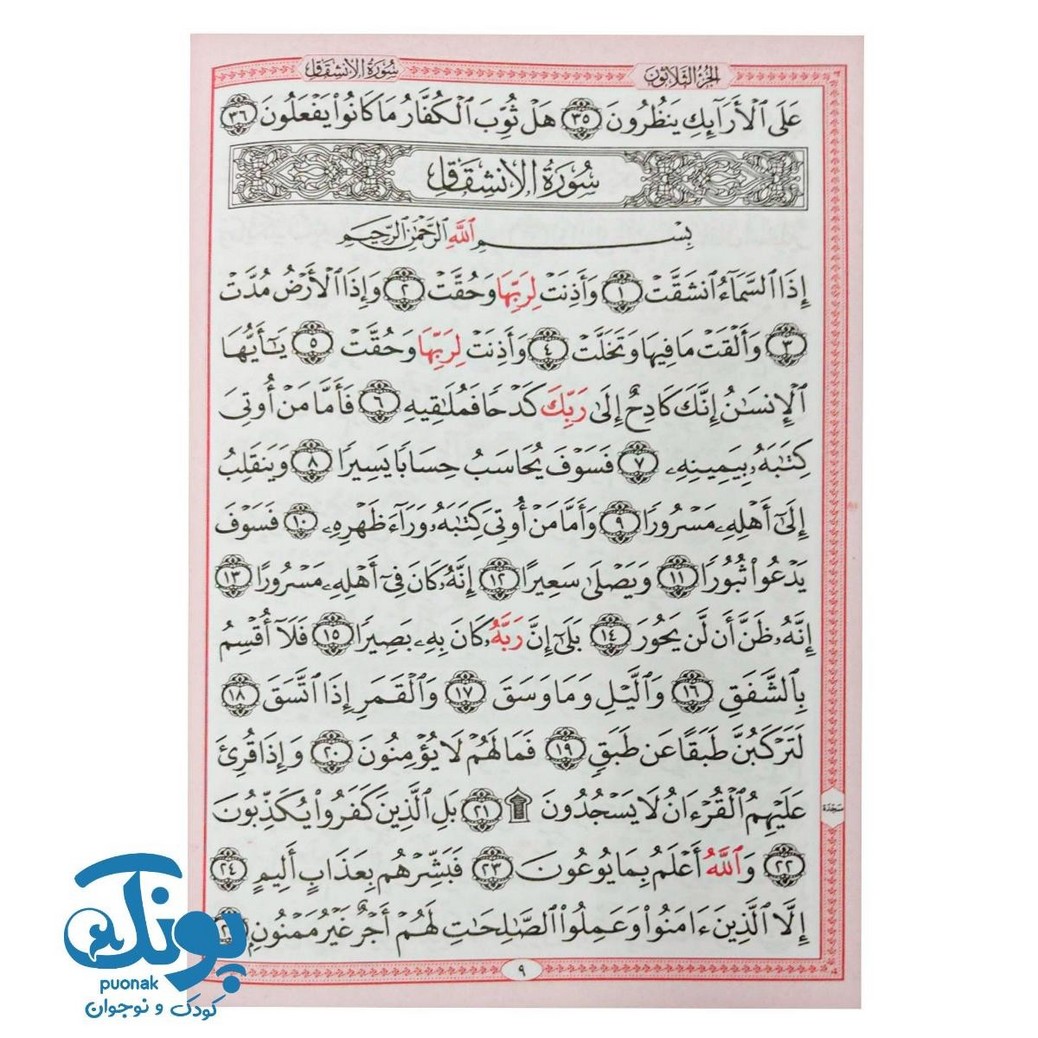 الجزء الثلاثون
سورة الانشقاق
عَلَى ٱلْأَرَآئِكِ يَنظُرُونَ ٣٥ هَلْ ثُوِّبَ ٱلْكُفَّارُ مَا كَانُوا۟ يَفْعَلُونَ ٣٦
سُورَةُ الانشِقَاقِ
بِسْمِ ٱللَّهِ ٱلرَّحْمَٰنِ ٱلرَّحِيمِ
إِذَا ٱلسَّمَآءُ ٱنشَقَّتْ ١ وَأَذِنَتْ لِرَبِّهَا وَحُقَّتْ ٢ وَإِذَا ٱلْأَرْضُ مُدَّتْ
٣ وَأَلْقَتْ مَا فِيهَا وَتَخَلَّتْ ٤ وَأَذِنَتْ لِرَبِّهَا وَحُقَّتْ ٥ يَٰٓأَيُّهَا
ٱلْإِنسَٰنُ إِنَّكَ كَادِحٌ إِلَىٰ رَبِّكَ كَدْحًا فَمُلَٰقِيهِ ٦ فَأَمَّا مَنْ أُوتِىَ
كِتَٰبَهُۥ بِيَمِينِهِۦ ٧ فَسَوْفَ يُحَاسَبُ حِسَابًا يَسِيرًا ٨ وَيَنقَلِبُ
إِلَىٰٓ أَهْلِهِۦ مَسْرُورًا ٩ وَأَمَّا مَنْ أُوتِىَ كِتَٰبَهُۥ وَرَآءَ ظَهْرِهِۦ ١٠ فَسَوْفَ
يَدْعُوا۟ ثُبُورًا ١١ وَيَصْلَىٰ سَعِيرًا ١٢ إِنَّهُۥ كَانَ فِىٓ أَهْلِهِۦ مَسْرُورًا ١٣
إِنَّهُۥ ظَنَّ أَن لَّن يَحُورَ ١٤ بَلَىٰٓ إِنَّ رَبَّهُۥ كَانَ بِهِۦ بَصِيرًا ١٥ فَلَآ أُقْسِمُ
بِٱلشَّفَقِ ١٦ وَٱلَّيْلِ وَمَا وَسَقَ ١٧ وَٱلْقَمَرِ إِذَا ٱتَّسَقَ ١٨
لَتَرْكَبُنَّ طَبَقًا عَن طَبَقٍ ١٩ فَمَا لَهُمْ لَا يُؤْمِنُونَ ٢٠ وَإِذَا قُرِئَ
عَلَيْهِمُ ٱلْقُرْءَانُ لَا يَسْجُدُونَ ۩ ٢١ بَلِ ٱلَّذِينَ كَفَرُوا۟ يُكَذِّبُونَ
سجدة
٢٢ وَٱللَّهُ أَعْلَمُ بِمَا يُوعُونَ ٢٣ فَبَشِّرْهُم بِعَذَابٍ أَلِيمٍ ٢٤
إِلَّا ٱلَّذِينَ ءَامَنُوا۟ وَعَمِلُوا۟ ٱلصَّٰلِحَٰتِ لَهُمْ أَجْرٌ غَيْرُ مَمْنُونٍۭ
٩
پونک
puonak
کودک و نوجوان